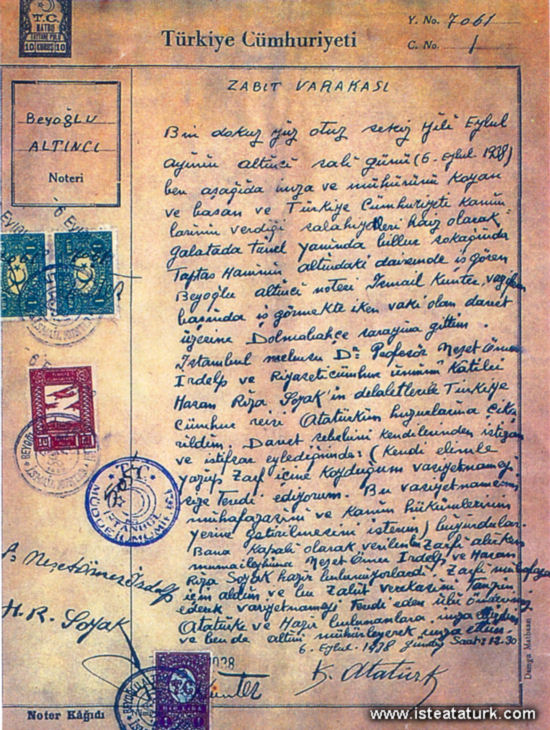 T.C.
10 KURUŞ 10
Y. No. 7061
C. No. 1
Türkiye Cümhuriyeti
ZABIT VARAKASI
Beyoğlu
ALTINCI
Noteri
Bin dokuz yüz otuz sekiz yılı Eylul
ayının altıncı salı günü (6. Eylul 1938)
ben aşağıda imza ve mühürünü koyan
ve basan ve Türkiye Cümhuriyeti kanun
larının verdiği salahiyetleri haiz olarak
galatada tünel yanında billur sokağında
Taptas Hanının altındaki dairemde iş gören
Beyoğlu altıncı noteri İsmail Kunter vazifem
başında iş görmekte iken vaki olan davet
üzerine Dolmabahçe sarayına gittim.
İstanbul mebusu Dr. Profesör Neşet Ömer
İrdelp ve Riyaseticümhur umumi Kâtibi
Hasan Rıza Soyak'ın delaletlerile Türkiye
Cümhur reisi Atatürkün huzurlarına çıka
rıldım. Davet sebebini kendilerinden istizan
ve istifsar eylediğimde: (Kendi elimle
yazıp zarf içine koyduğum vasiyetnameyi
size tevdi ediyorum. Bu vasiyetnamemin
muhafazasını ve kanun hükümlerinin
yerine getirilmesini isterim) buyurdular.
Bana kapalı olarak verilen bu zarfı alırken
mumaileyhima Neşet Ömer İrdelp ve Hasan
Rıza Soyak hazır bulunuyorlardı. Zarfı muhafaza
için aldım ve bu zabıt varakasını tanzim
ederek vasiyetnameyi tevdi eden ulu önderimiz
Atatürke ve hazır bulunanlara imza
ve ben de altını mühürleyerek imza ettim
6. Eylul. 1938 Saat: 12.30
Neşet Ömer İrdelp
H. R. Soyak
T.C.
Kunter
K. Atatürk
Noter Kâğıdı
Damga Matbaası
www.isteataturk.com